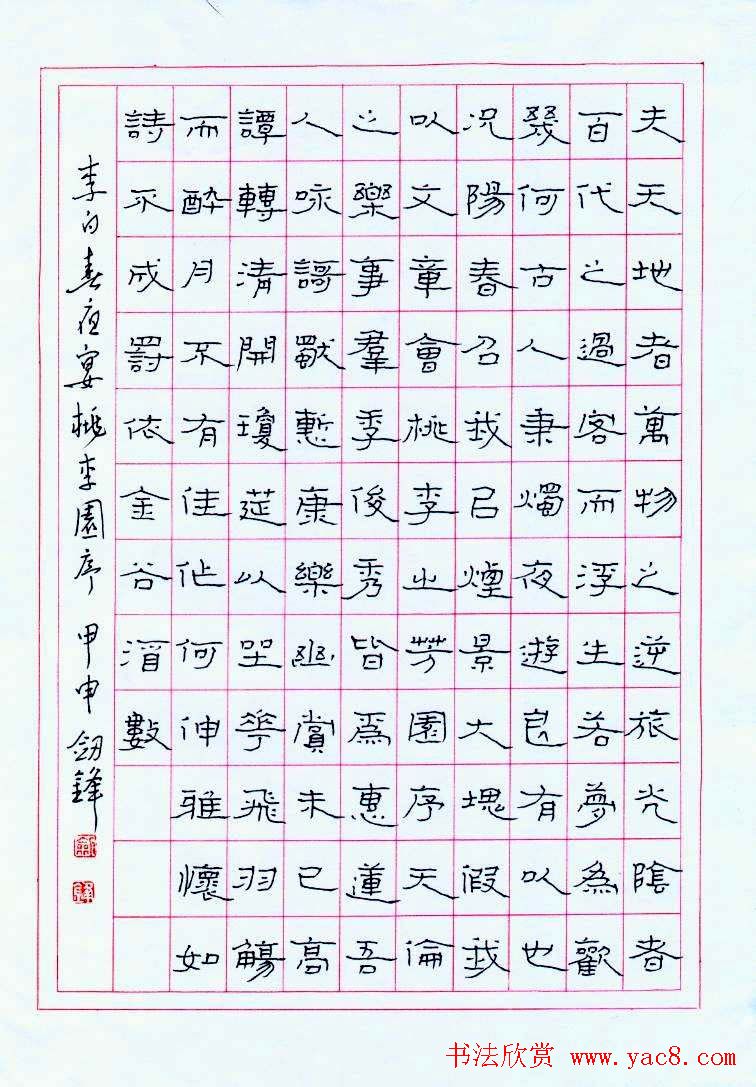 夫天地者萬物之逆旅光陰者
百代之過客而浮生若夢為歡
幾何古人秉燭夜遊良有以也
況陽春召我㠯煙景大塊假我
以文章會桃李之芳園序天倫
之樂事羣季俊秀皆爲惠連吾
人咏謌獨慙康樂幽賞未已高
譚轉清開瓊莚以坐華飛羽觴
而醉月不有佳作何伸雅懷如
詩不成罰依金谷酒數
李白春夜宴桃李園序 甲申 劍鋒
书法欣赏 www.yac8.com